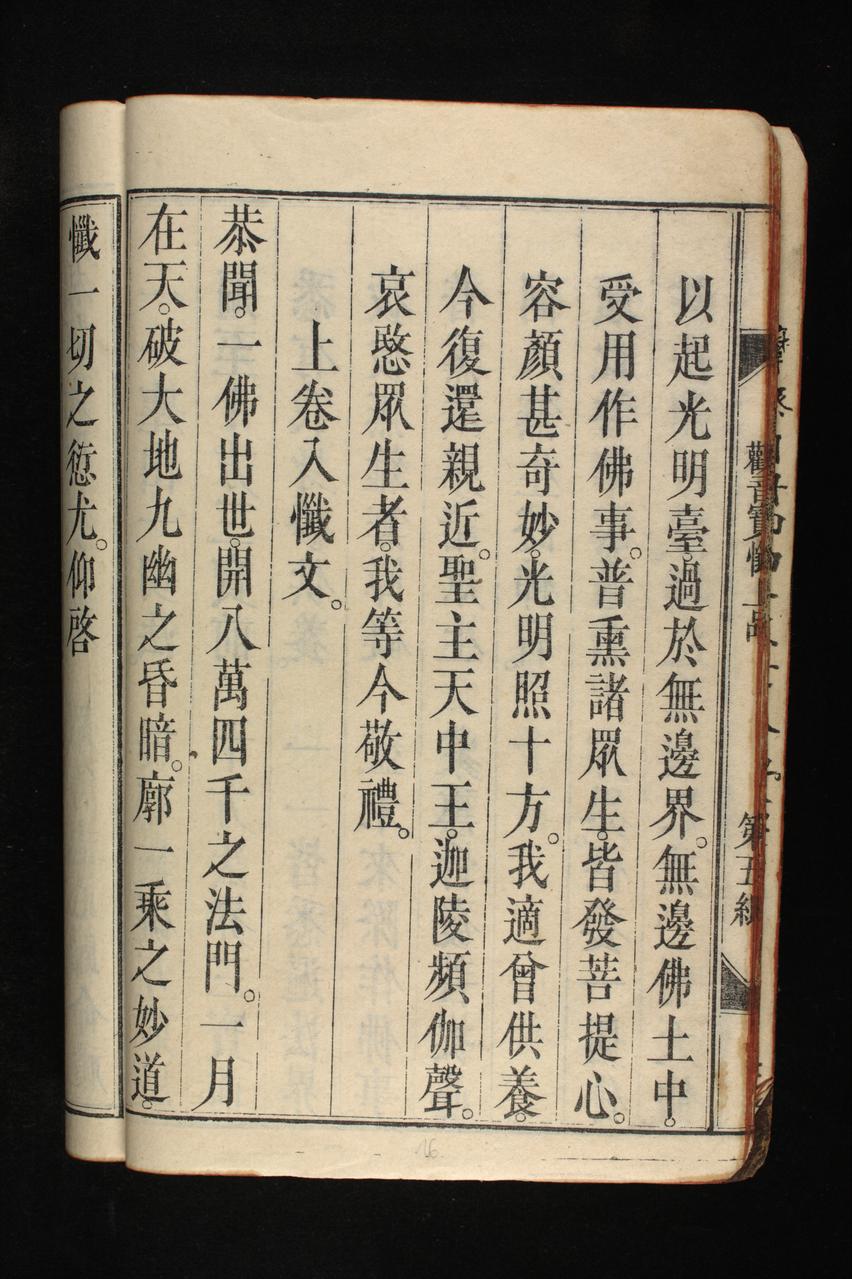 以起光明臺。過於無邊界。無邊佛土中。
受用作佛事。普熏諸眾生。皆發菩提心。
容顏甚奇妙。光明照十方。我適曾供養。
今復還親近。聖主天中王。迦陵頻伽聲。
哀愍眾生者。我等今敬禮。
上卷入懺文。
恭聞。一佛出世。開八萬四千之法門。一月
在天。破大地九幽之昏暗。廓一乘之妙道。
懺一切之愆尤。仰啓
第五
16